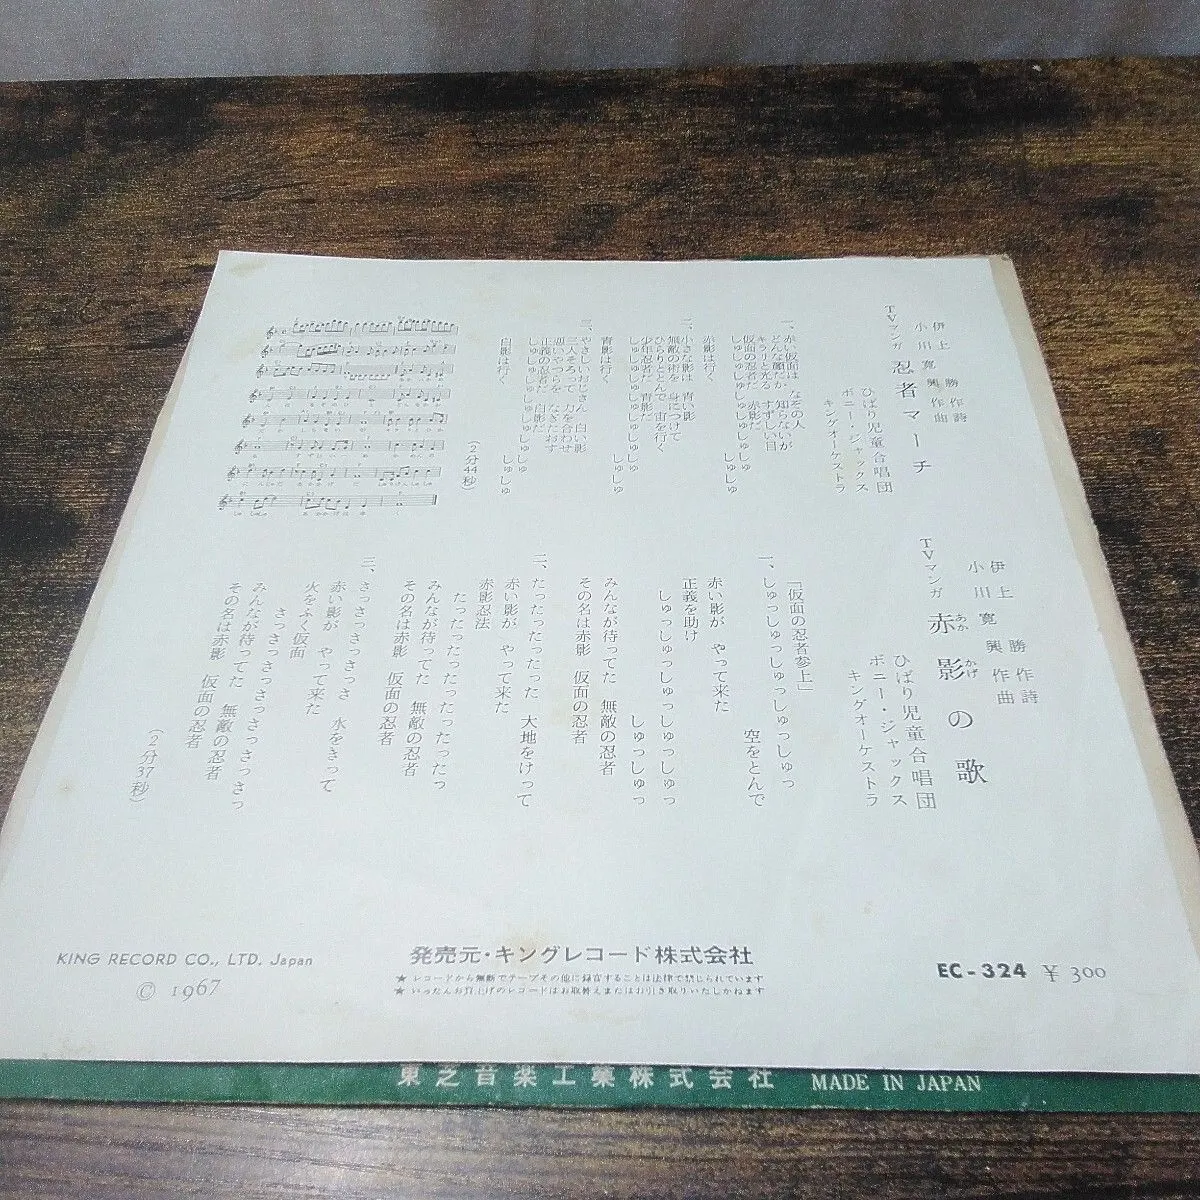 TVマンガ 忍者マーチ
伊上 勝 作詩
小川寛興 作曲
ひばり児童合唱団
ボニー・ジャックス
キングオーケストラ
一、赤い仮面は なぞの人
どんな顔だか 知らないが
キラリと光る すずしい目
仮面の忍者だ 赤影だ
しゅしゅしゅしゅしゅしゅしゅ
しゅしゅ
赤影は行く
二、小さな影は 青い影
無敵の術を 身につけて
ひらりととんで 宙を行く
少年忍者だ 青影だ
しゅしゅしゅしゅしゅしゅしゅ
しゅしゅ
青影は行く
三、やさしいおじさん 白い影
三人そろって 力を合わせ
悪いやつらを なぎたおす
正義の忍者だ 白影だ
しゅしゅしゅしゅしゅしゅしゅ
しゅしゅ
白影は行く
(2分44秒)
TVマンガ 赤影の歌
あか かげ
伊上 勝 作詩
小川寛興 作曲
ひばり児童合唱団
ボニー・ジャックス
キングオーケストラ
「仮面の忍者参上」
一、しゅっしゅっしゅっしゅっしゅっ
空をとんで
赤い影が やって来た
正義を助け
しゅっしゅっしゅっしゅっしゅっ
しゅっしゅっ
みんなが待ってた 無敵の忍者
その名は赤影 仮面の忍者
二、たったったったった 大地をけって
赤い影が やって来た
赤影忍法
たったったったったったったっ
みんなが待ってた 無敵の忍者
その名は赤影 仮面の忍者
三、さっさっさっさっさ 水をきって
赤い影が やって来た
火をふく仮面
さっさっさっさっさっさっさっ
みんなが待ってた 無敵の忍者
その名は赤影 仮面の忍者
(2分37秒)
KING RECORD CO., LTD. Japan
© 1967
発売元・キングレコード株式会社
★ レコードから無断でテープその他に録音することは法律で禁じられています
★ いったんお買上げのレコードはお取替えまたはお引き取りいたしかねます
EC-324 ¥300
東芝音楽工業株式会社 MADE IN JAPAN